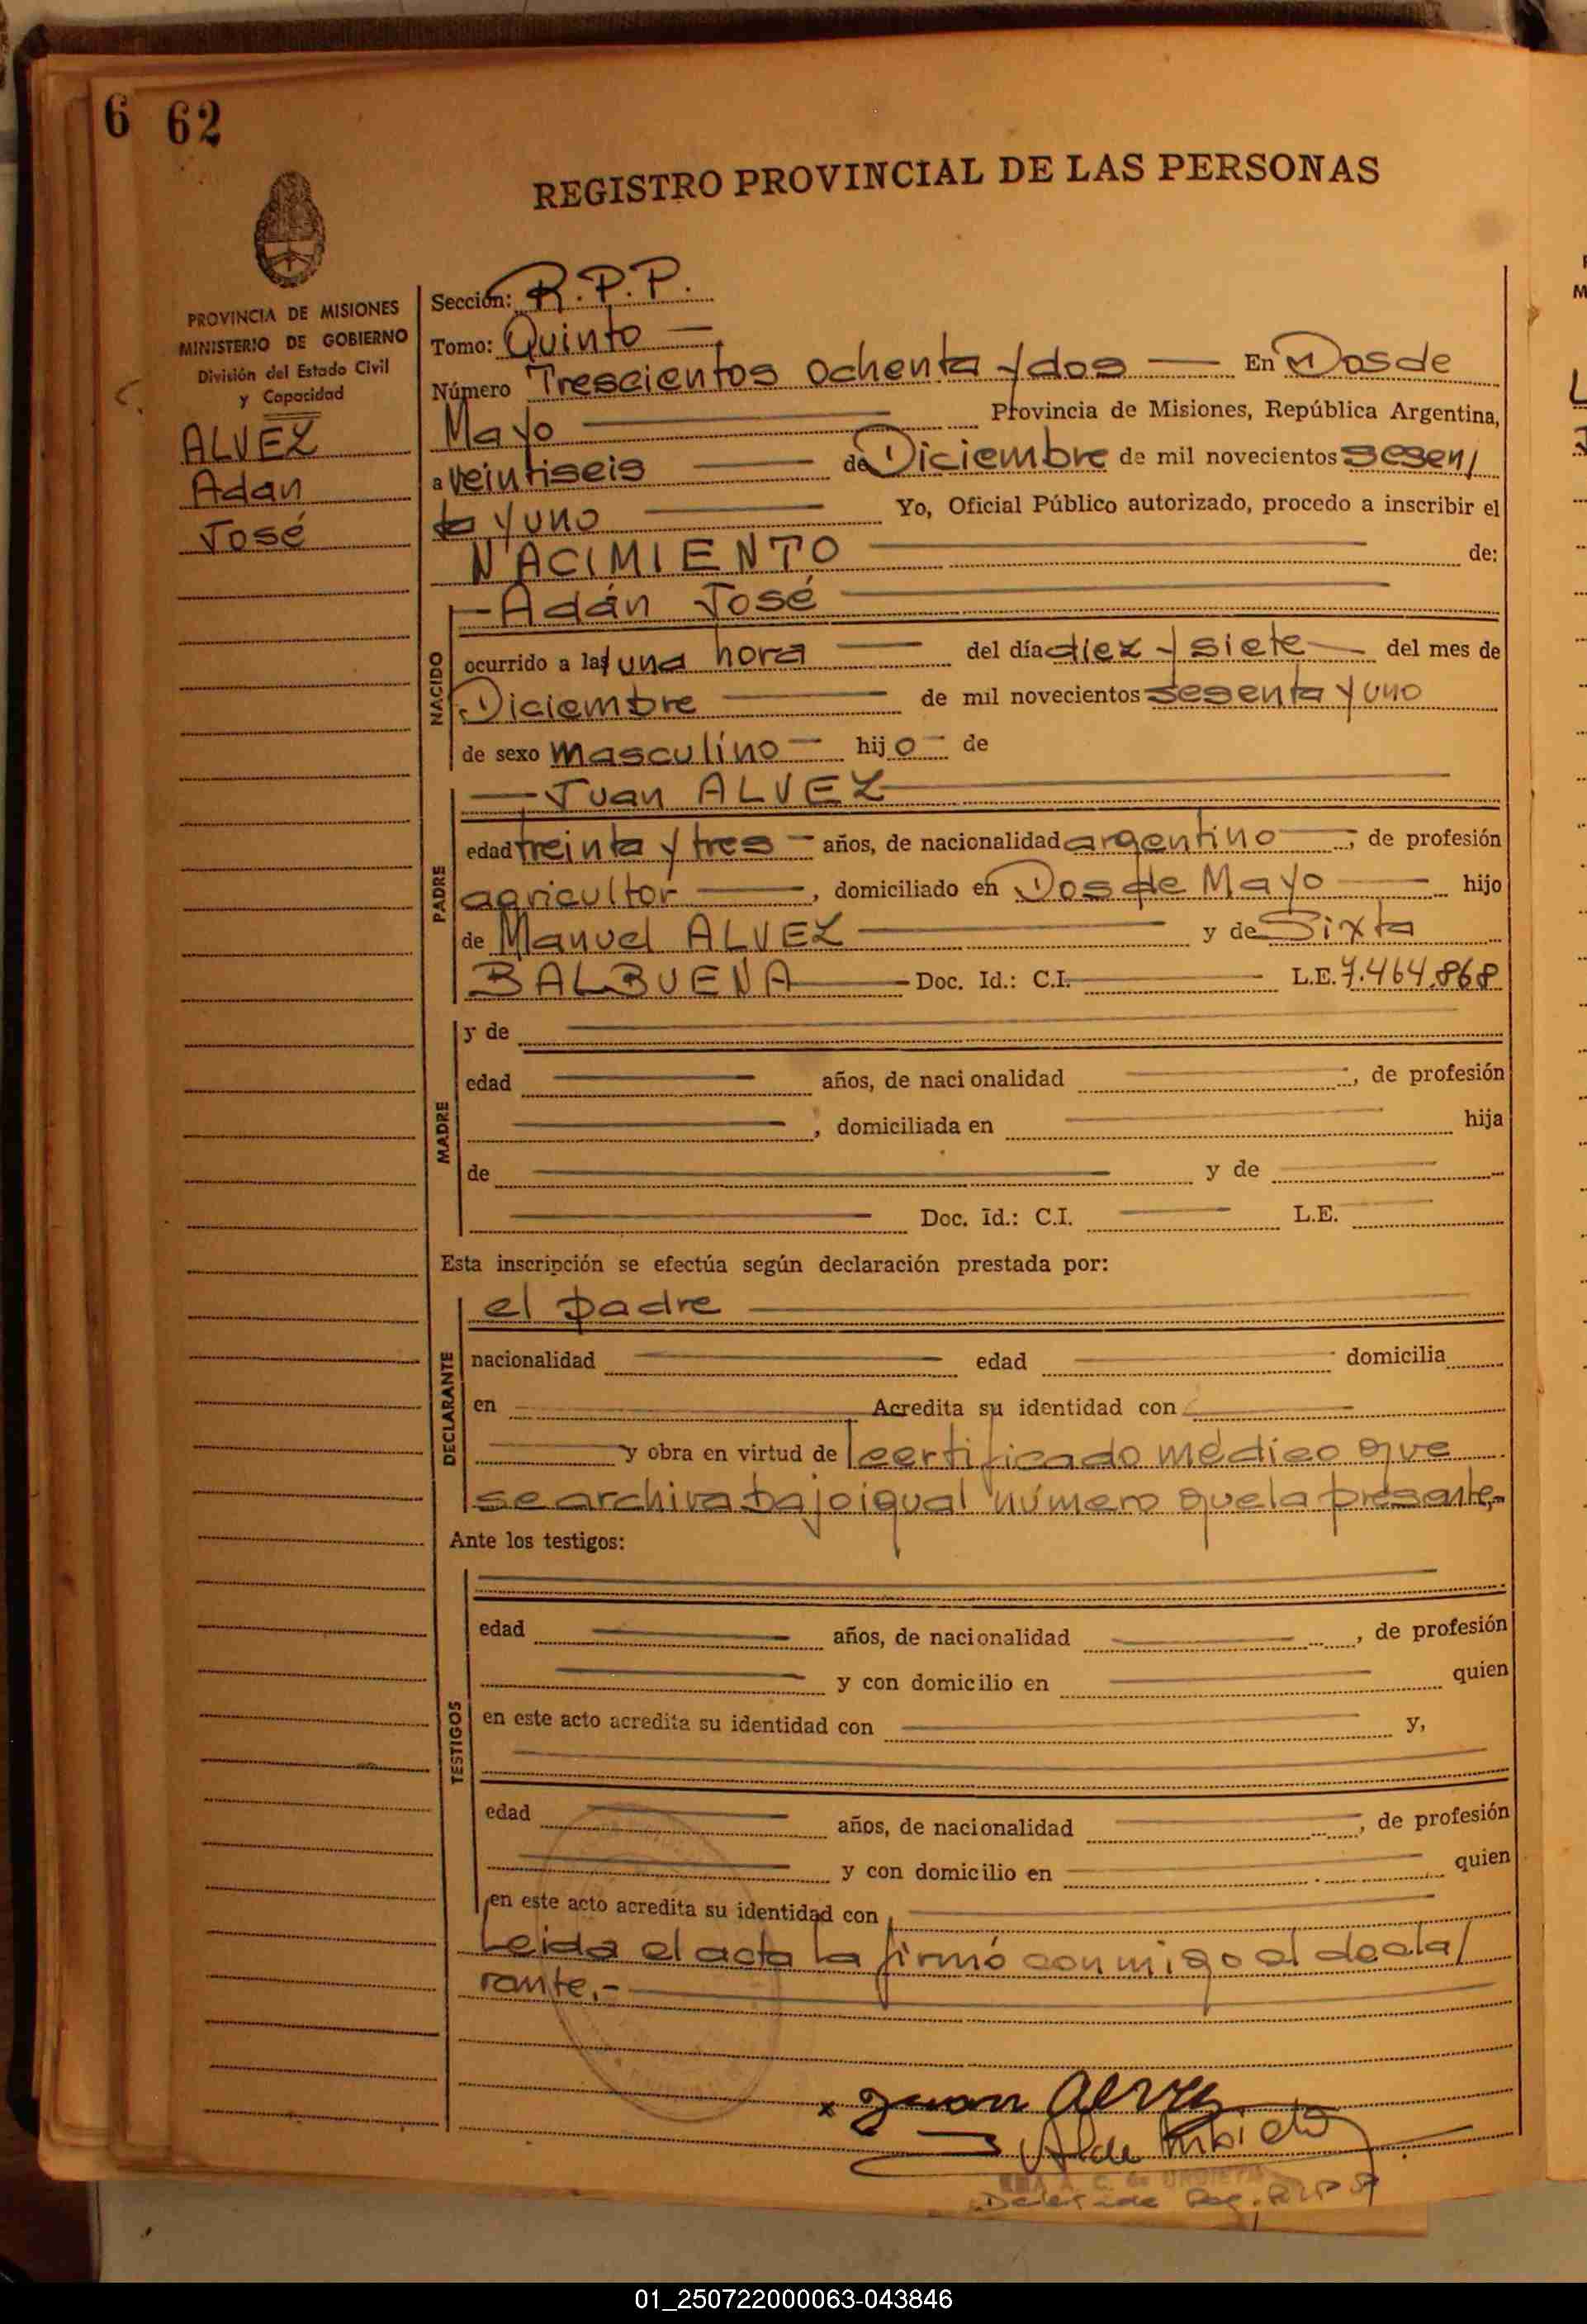 6 62
REGISTRO PROVINCIAL DE LAS PERSONAS
PROVINCIA DE MISIONES
MINISTERIO DE GOBIERNO
División del Estado Civil
y Capacidad
ALVEZ
Adán
José
Sección: R.P.P.
Tomo: Quinto
Número Trescientos ochenta y dos En Dos de
Mayo Provincia de Misiones, República Argentina,
a veintiseis de Diciembre de mil novecientos sesen/
ta y uno Yo, Oficial Público autorizado, procedo a inscribir el
NACIMIENTO de:
NACIDO
Adán José
ocurrido a las una hora del día diez y siete del mes de
Diciembre de mil novecientos sesenta y uno
de sexo masculino hijo de
PADRE
Juan ALVEZ
edad treinta y tres años, de nacionalidad argentino, de profesión
agricultor, domiciliado en Dos de Mayo hijo
de Manuel ALVEZ y de Sixta
BALBUENA Doc. Id.: C.I. L.E. 7.464.868
MADRE
y de
edad años, de nacionalidad , de profesión
, domiciliada en hija
de y de
Doc. Id.: C.I. L.E.
Esta inscripción se efectúa según declaración prestada por:
DECLARANTE
el padre
nacionalidad edad domicilia
en Acredita su identidad con
y obra en virtud de certificado médico que
se archiva bajo igual número que la presente,-
Ante los testigos:
TESTIGOS
edad años, de nacionalidad , de profesión
y con domicilio en quien
en este acto acredita su identidad con y,
edad años, de nacionalidad , de profesión
y con domicilio en quien
en este acto acredita su identidad con
Leida el acta la firmó conmigo el decla/
rante.-
x Juan Alvez
A. C. de URDIETA
01_250722000063-043846